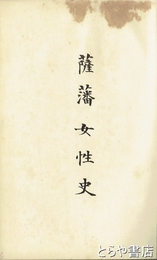 薩藩女性史
とらや書店